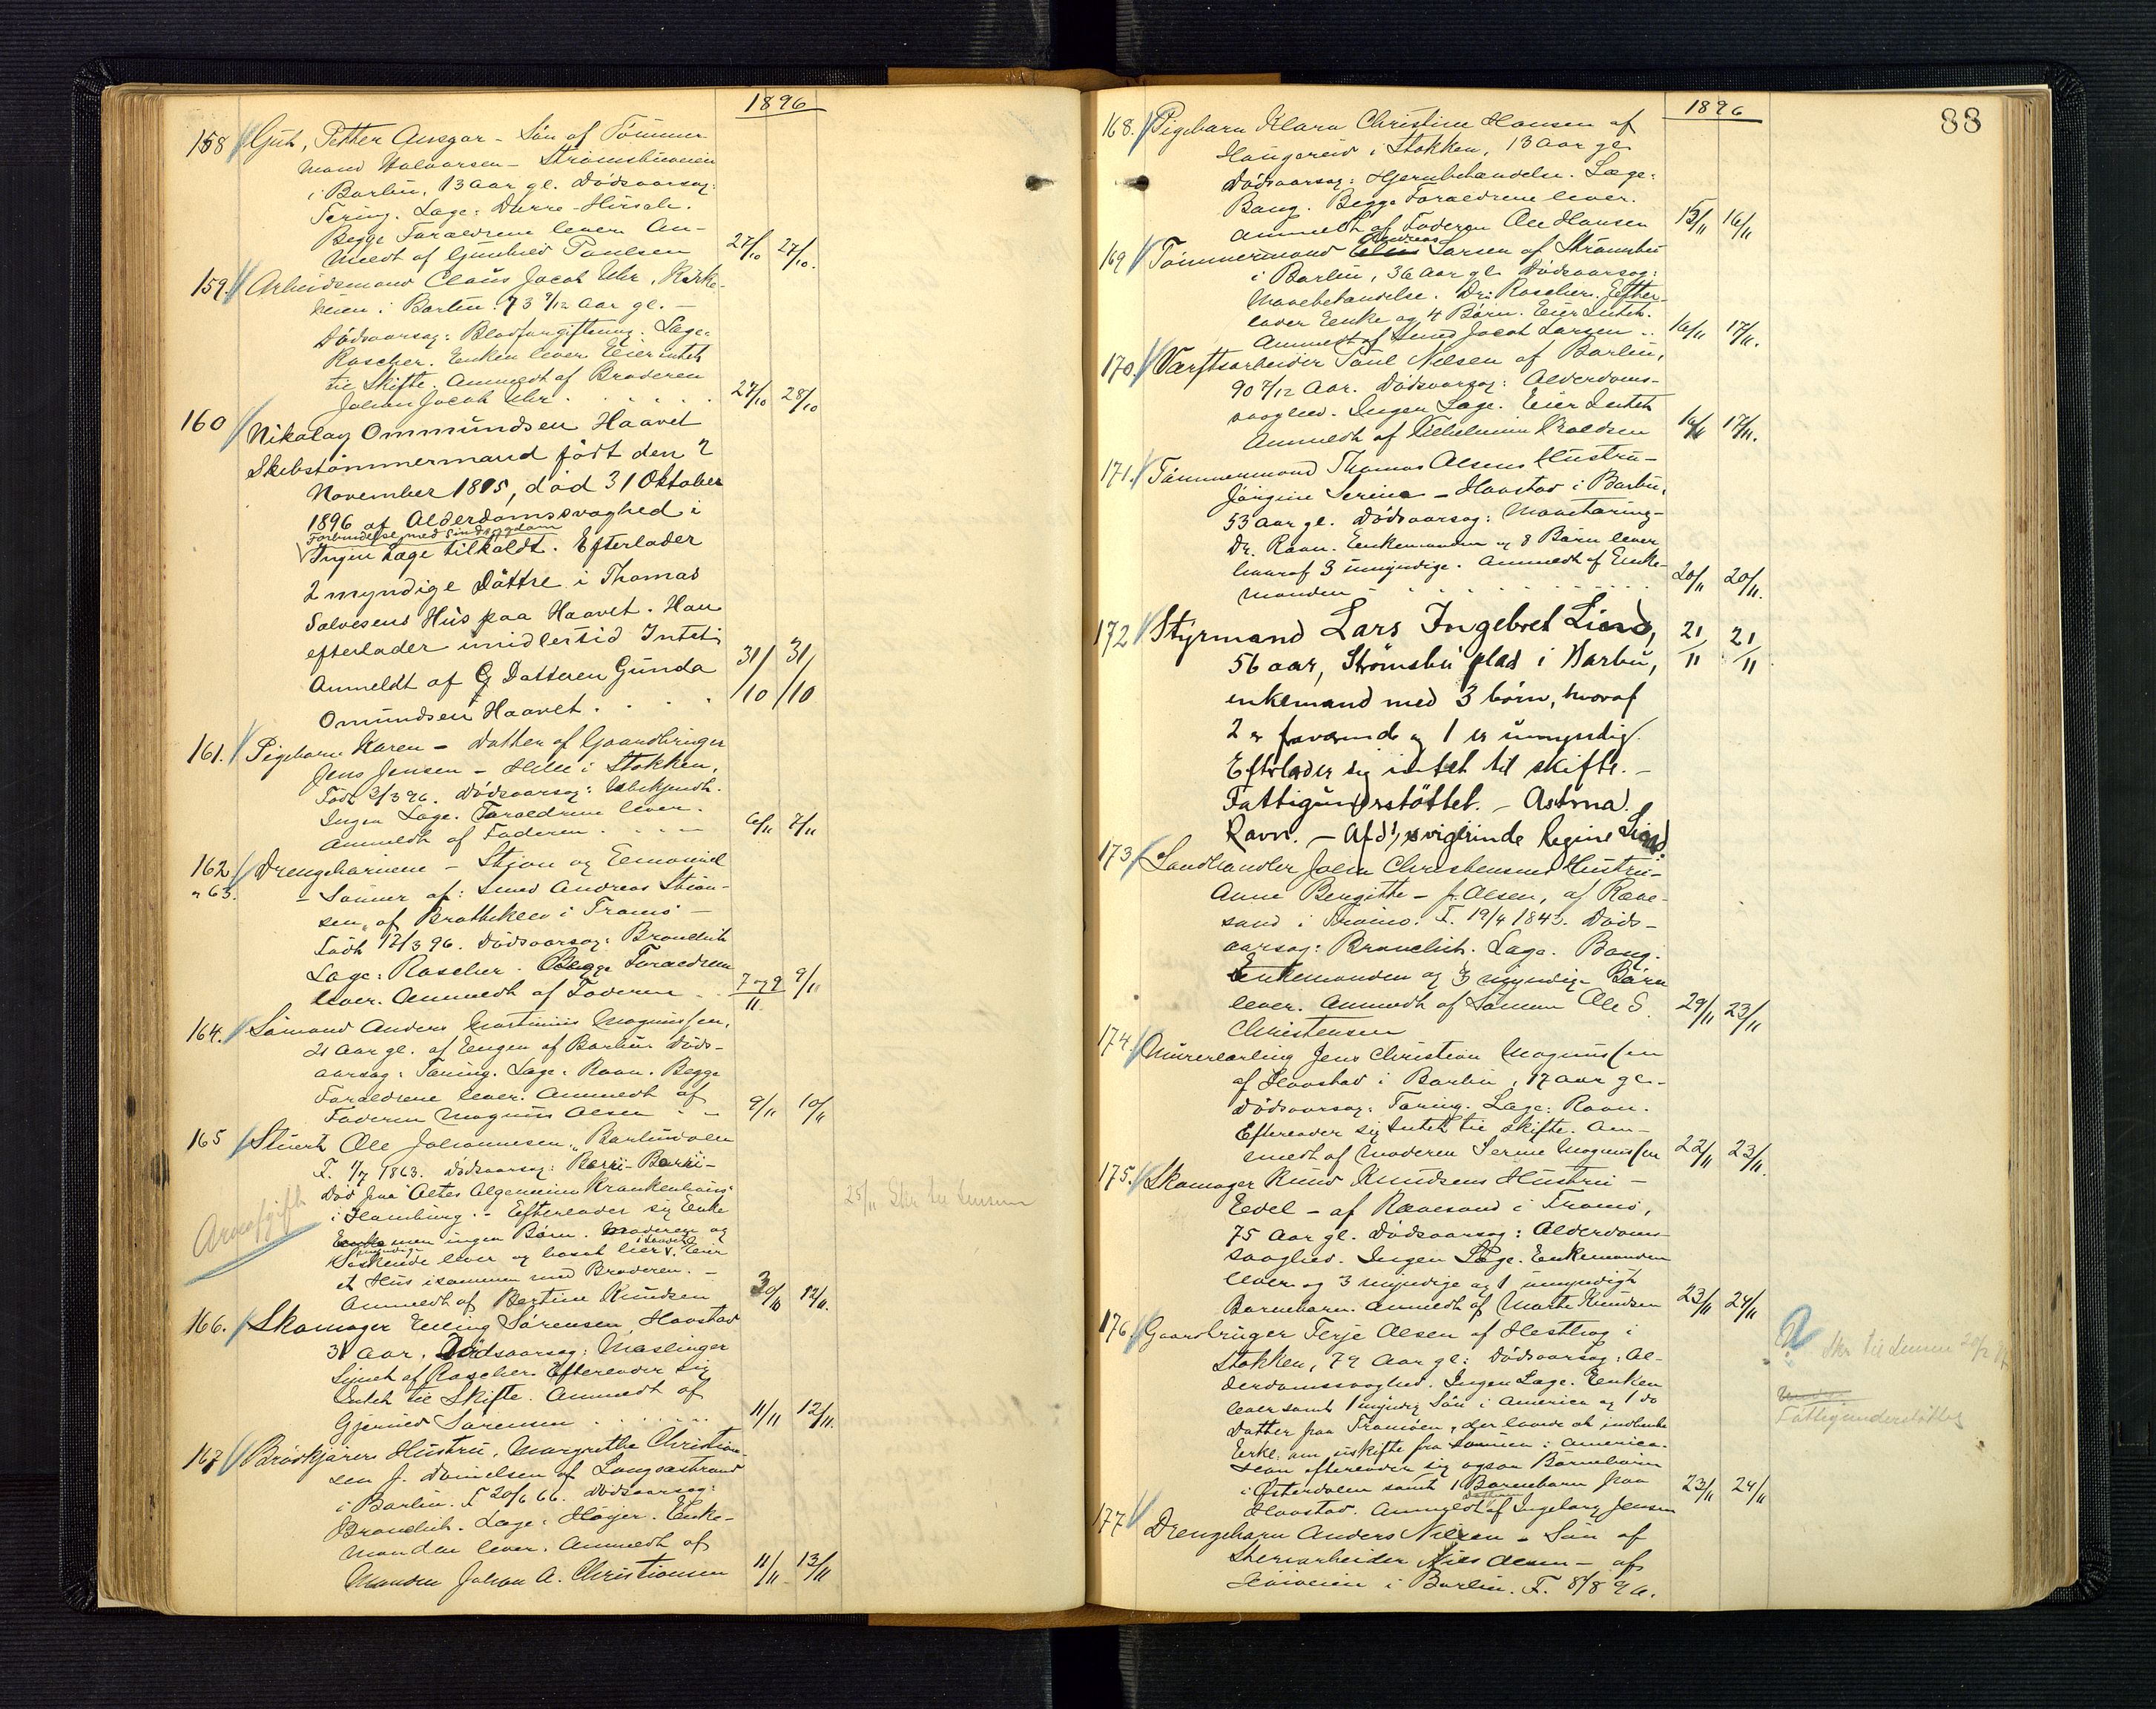 1896
158 Gut, Petter Ansgar - Sön af Tömmer
mand Halvorsen - Strömsbuveien
i Barbu, 13 Aar gl. Dödsaarsag:
Tering. Læge: Durre-Hirsch.
Begge Forældrene lever. An-
meldt af Gunhild Paulsen 27/10 27/10.
159. Arbeidsmand Claus Jacob Uhr, Kirke-
heien i Barbu. 73 9/12 Aar gl. -
Dödsaarsag: Blodforgiftning. Læge:
Roscher. Enken lever. Eier intet
til Skifte. Anmeldt af Broderen
Johan Jacob Uhr. . . . . . 27/10 28/10
160 Nikolay Ommundsen Haavet
Skibstömmermand född den 2
November 1815, död 31 Oktober
1896 af Alderdomssvaghed i
Forbindelse med Sindssygdom
Ingen Læge tilkaldt. Efterlader
2 myndige Döttre i Thomas
Salvesens Hus paa Haavet. Han
efterlader imidlertid Intet.
Anmeldt af Datteren Gunda
Omundsen Haavet. . . . 31/10 31/10
161. Pigebarn Karen - Datter af Gaardbruger
Jens Jensen - Hille i Stokken,
Födt 3/3 96. Dödsaarsag: Ubekjendt.
Ingen Læge. Forældrene lever.
Anmeldt af Faderen. . . - 6/11 7/11
162 Drengebarnene - Stian og Emanuel
" 63. - Sönner af: Smed Andreas Stian-
sen, af Bratteklev i Tromö -
Födt 12/3 96. Dödsaarsag: Bronchit
Læge: Roscher. Begge Forældrene
lever. Anmeldt af Faderen . . 7 og 9/11 9/11
164. Sömand Anders Martinius Magnussen,
21 Aar gl. af Engen af Barbu. Döds-
aarsag: Tæring. Læge: Ravn. Begge
Forældrene lever. Anmeldt af
Faderen Magnus Olsen . - 9/11 10/11
165 Stuert Ole Johannesen, Barbudalen
F. 1/7 1863. Dödsaarsag: Berri-Berri-
Död paa "Altes Algemeine Krankenhaus"
i Hamburg. - Efterlader sig Enke
men ingen Börn. Moderen og
Söskende lever og bosat her. Eier
et Hus isammen med Broderen. -
Anmeldt af Bertine Knudsen 30/10 12/11.
Arveafgift
25/11 Skr til Lensm
166. Skomager Elling Sörensen, Havstad
31 Aar. Dödsaarsag: Mæslinger
Synet af Roscher. Efterlader sig
Intet til Skifte. Anmeldt af
Gjermund Sörensen . . . . . . . 11/11 12/11.
167 Brödkjörers Hustru, Margrethe Christian-
sen f. Danielsen af Langsæstrand
i Barbu. F 20/6 66. Dödsaarsag:
Bronchit. Læge: Höyer. Enke-
manden lever. Anmeldt af
Manden Johan A. Christiansen 11/11 13/11
1896
88
168. Pigebarn Klara Christine Hansen af
Haugereid i Stokken, 13 Aar gl.
Dödsaarsag: Hjernebetændelse. Læge:
Bang. Begge Forældrene lever.
Anmeldt af Faderen Ole Hansen 15/11 16/11
169 Tömmermand Andreas Larsen af Strömsbu
i Barbu, 36 Aar gl. Dödsaarsag:
Mavebetændelse. Dr: Roscher. Efter-
lader Enke og 4 Börn. Eier Intet.
Anmeldt af Smed Jacob Larsen . . 16/11 17/11.
170. Værftsarbeider Paul Nilsen af Barbu,
90 7/12 Aar. Dödsaarsag: Alderdoms-
svaghed. Ingen Læge. Eier Intet
Anmeldt af Vilhelmine Knudsen 16/11 17/11.
171. Tömmermand Thomas Olsens Hustru -
Jörgine Serine - Havstad i Barbu,
53 Aar gl. Dödsaarsag: Mavetæring -
Dr. Ravn. Enkemanden og 8 Börn lever
hvoraf 3 umyndige. Anmeldt af Enke-
manden - . . . . . . . . . . 20/11 20/11.
172 Styrmand Lars Ingebret Lind, 21/11 21/11
56 aar, Strömsbu plads i Barbu,
enkemand med 3 börn, hvoraf
2 er fraværende og 1 er umyndig.
Efterlader sig intet til skifte. -
Fattigunderstöttet. - Astma.
Ravn. - Afd's svigerinde Regine Lind.
173 Landhandler John Christensens Hustru -
Anne Bengitte - f. Olsen, af Ræve-
sand i Tromö. F. 19/4 1843. Döds-
aarsag: Bronchit. Læge. Bang.
Enkemanden og 3 myndige Börn
lever. Anmeldt af Sönnen Ole S. 29/11 23/11
Christensen
174. Murerlærling Jens Christian Magnussen
af Havstad i Barbu, 17 Aar gl. -
Dödsaarsag: Tæring. Læge: Ravn.
Efterlader sig Intet til Skifte. An-
meldt af Moderen Serine Magnussen 22/11 23/11.
175. Skomager Knud Knudsens Hustru -
Edel - af Rævesand i Tromö,
75 Aar gl. Dödsaarsag: Alderdoms-
svaghed. Ingen Læge. Enkemanden
lever og 3 myndige og 1 umyndigt
Barnebarn. Anmeldt af Marte Knudsen 23/11 24/11
176. Gaardbruger Terje Olsen af Hesthag i
Stokken, 79 Aar gl: Dödsaarsag: Al-
derdomssvaghed. Ingen Læge. Enken
lever samt 1 myndig Sön i America og 1 do
Datter paa Tromöen, der lovede at indhente
Erkl. om uskifte fra Sönnen i America.
Han efterlader sig ogsaa Börnebörn
i Österdalen samt 1 Barnebarn paa
Havstad. Anmeldt af Datteren Ingeborg Jensen 23/11 24/11
Skr til Lensm 20/2 97
Fattigunderstöttet
177 Drengebarn Anders Nilsen - Sön af
Skriverarbeider Nils Olsen - af
i Barbu. F. 8/8 96.